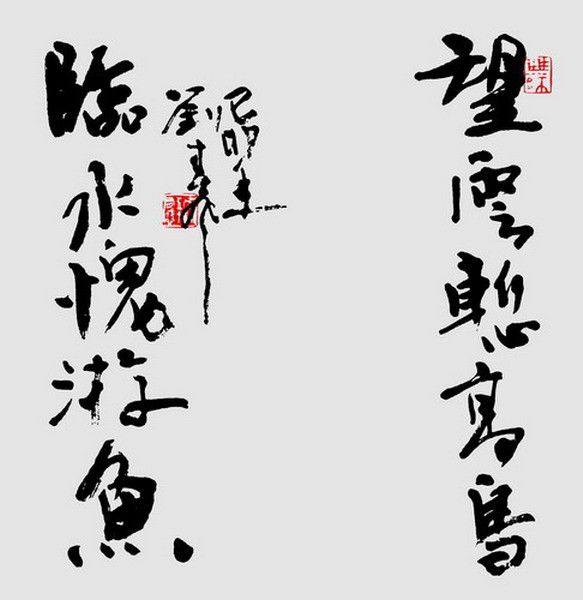 望雲慙高鳥
臨水愧游魚